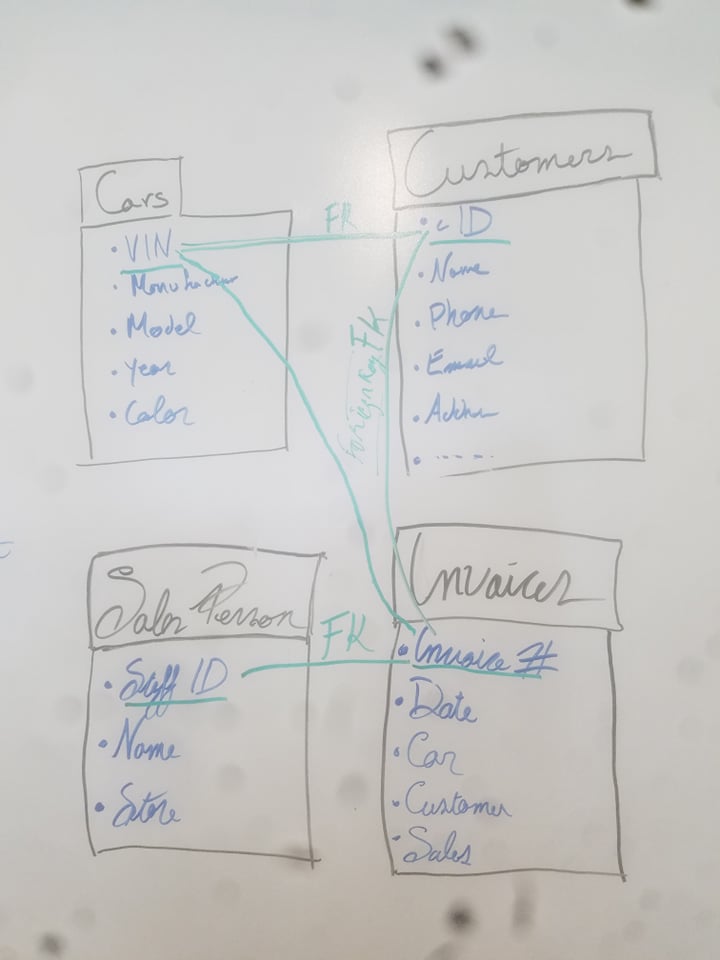 Cars
• VIN
•
• Model
• Year
• Color
FK
Customers
• c ID
• Name
• Phone
• Email
•
• - - - - -
Foreign Key FK
Sales Person
• Staff ID
• Name
• Store
FK
Invoices
• Invoice #
• Date
• Car
• Customer
• Sales